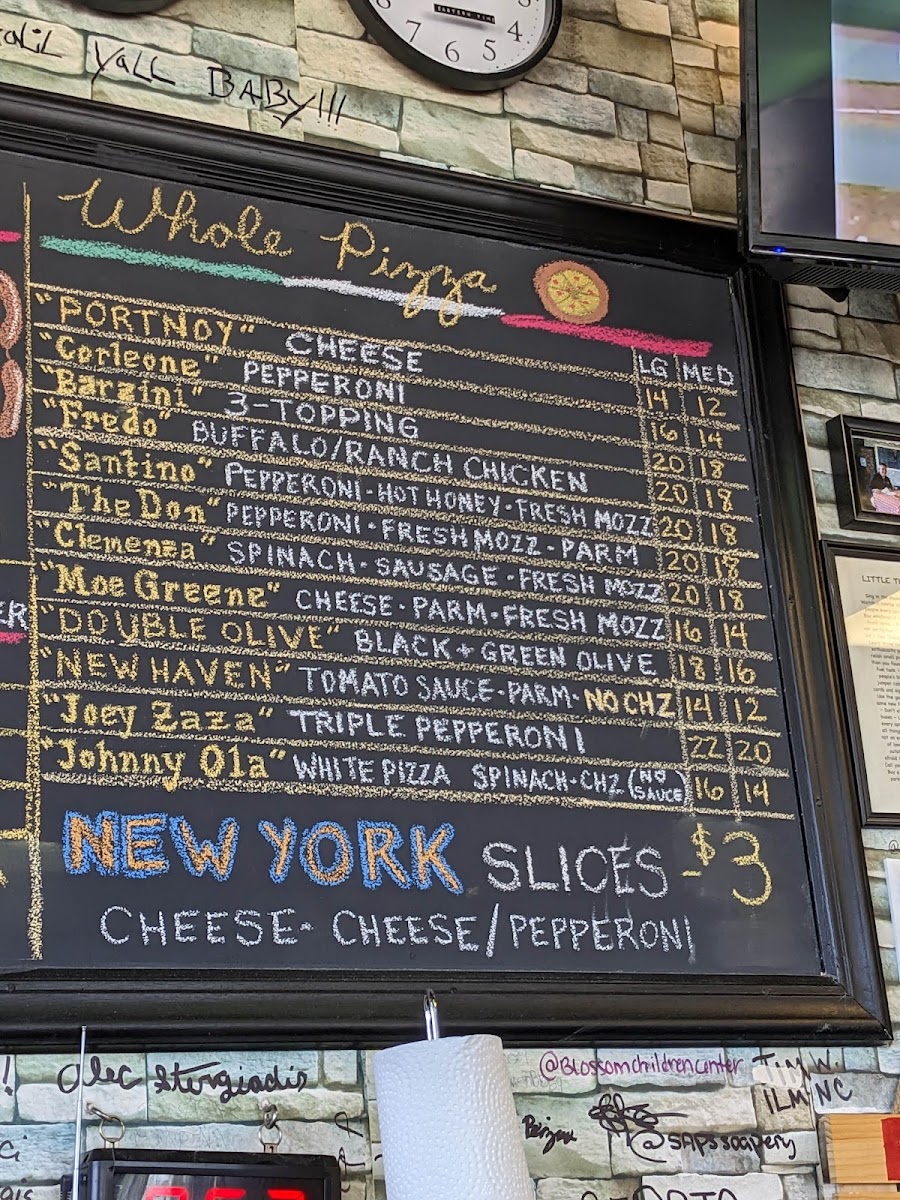 Yall BABY!!!
EASTERN TIME
8 7 6 5 4
Whole Pizza
LG MED
"PORTNOY" CHEESE 14 12
"Corleone" PEPPERONI 16 14
"Barzini" 3-TOPPING 20 18
"Fredo" BUFFALO/RANCH CHICKEN 20 18
"Santino" PEPPERONI-HOT HONEY-FRESH MOZZ 20 18
"The Don" PEPPERONI-FRESH MOZZ-PARM 20 18
"Clemenza" SPINACH-SAUSAGE-FRESH MOZZ 20 18
"Moe Greene" CHEESE-PARM-FRESH MOZZ 16 14
"DOUBLE OLIVE" BLACK + GREEN OLIVE 18 16
"NEW HAVEN" TOMATO SAUCE-PARM-NO CHZ 14 12
"Joey Zaza" TRIPLE PEPPERONI 22 20
"Johnny Ola" WHITE PIZZA SPINACH-CHZ (NO SAUCE) 16 14
NEW YORK SLICES $3
CHEESE- CHEESE/PEPPERONI
ER
LITTLE
@Blossomchildrencenter
TIM W.
ILM NC
Alec Stergiadis
@SAPSSOAPERY